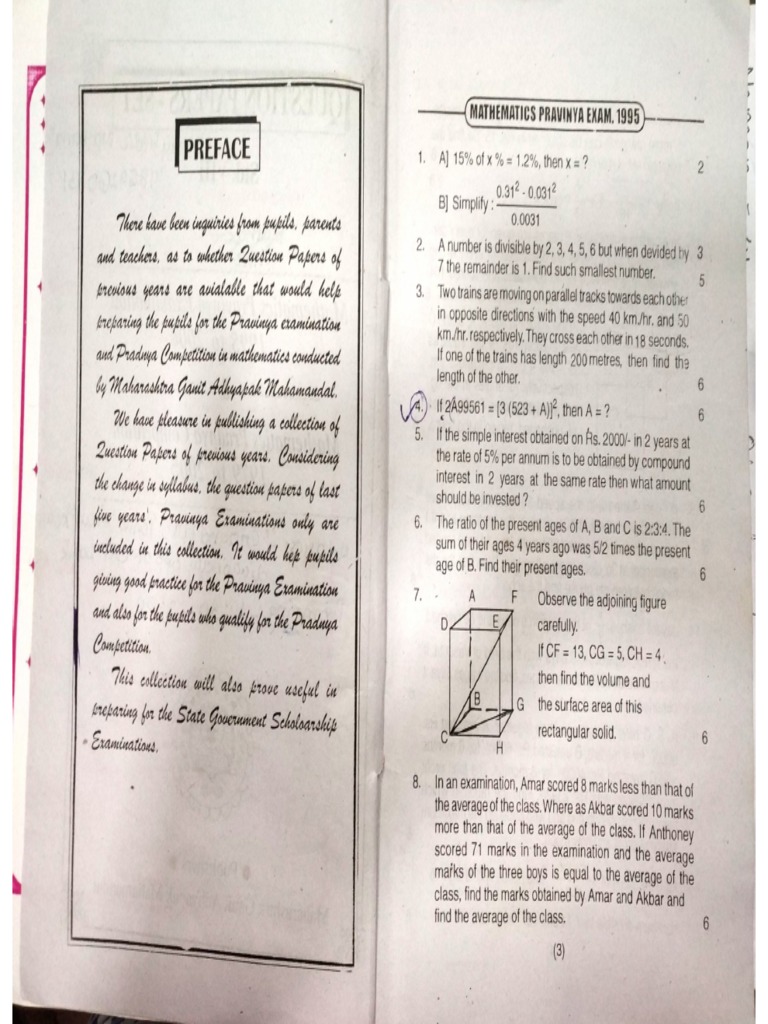 PREFACE
There have been inquiries from pupils, parents
and teachers, as to whether Question Papers of
previous years are avialable that would help
preparing the pupils for the Pravinya examination
and Pradnya Competition in mathematics conducted
by Maharashtra Ganit Adhyapak Mahamandal.
We have pleasure in publishing a collection of
Question Papers of previous years. Considering
the change in syllabus, the question papers of last
five years'. Pravinya Examinations only are
included in this collection. It would hep pupils
giving good practice for the Pravinya Examination
and also for the pupils who qualify for the Pradnya
Competition.
This collection will also prove useful in
preparing for the State Government Scholoarship
Examinations.
MATHEMATICS PRAVINYA EXAM. 1995
1. A] 15% of x % = 1.2%, then x = ? 2
B] Simplify : 0.31² - 0.031²
0.0031
2. A number is divisible by 2, 3, 4, 5, 6 but when devided by 3
7 the remainder is 1. Find such smallest number. 5
3. Two trains are moving on parallel tracks towards each other
in opposite directions with the speed 40 km./hr. and 50
km./hr. respectively. They cross each other in 18 seconds.
If one of the trains has length 200 metres, then find the
length of the other. 6
4. If 2A99561 = [3 (523 + A)]², then A = ? 6
5. If the simple interest obtained on Rs. 2000/- in 2 years at
the rate of 5% per annum is to be obtained by compound
interest in 2 years at the same rate then what amount
should be invested ? 6
6. The ratio of the present ages of A, B and C is 2:3:4. The
sum of their ages 4 years ago was 5/2 times the present
age of B. Find their present ages. 6
7. A F Observe the adjoining figure
D E carefully.
If CF = 13, CG = 5, CH = 4
then find the volume and
B G the surface area of this
C rectangular solid. 6
H
8. In an examination, Amar scored 8 marks less than that of
the average of the class. Where as Akbar scored 10 marks
more than that of the average of the class. If Anthoney
scored 71 marks in the examination and the average
marks of the three boys is equal to the average of the
class, find the marks obtained by Amar and Akbar and
find the average of the class. 6
(3)